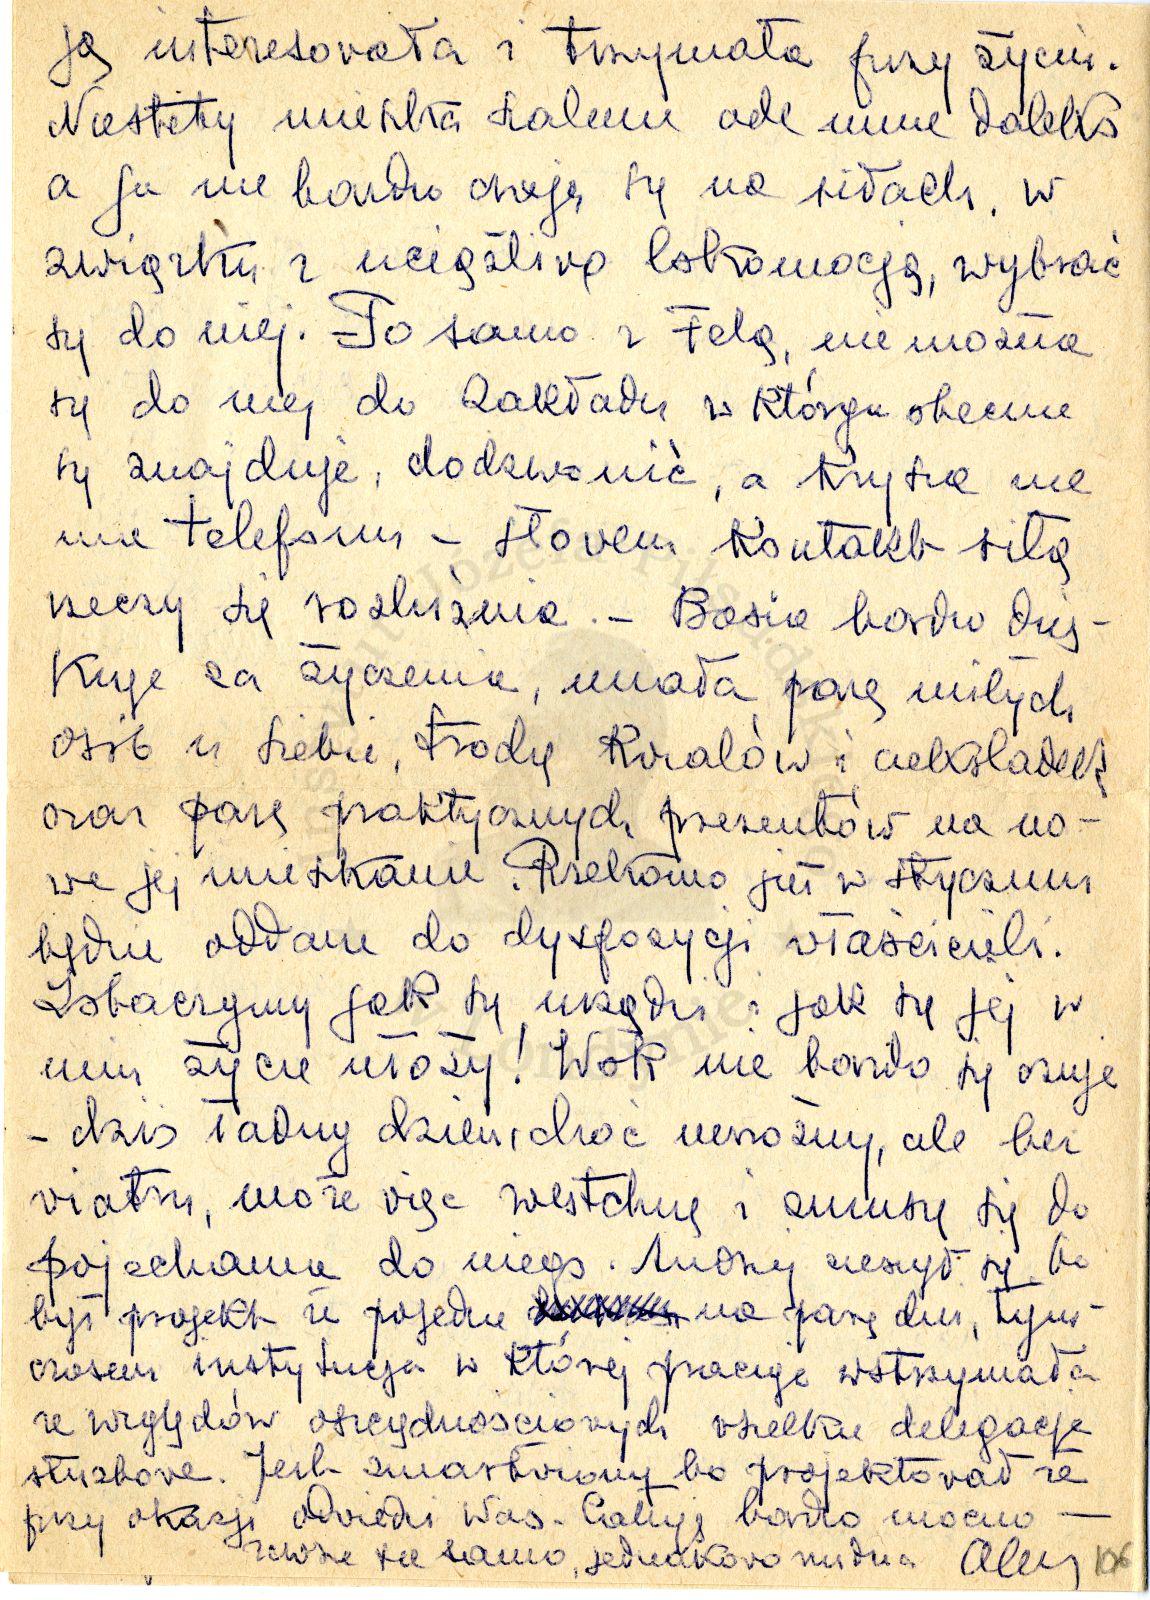 ją interesowała i trzymała przy życiu.
Niestety mieszka szalenie ode mnie daleko
a ja nie bardzo czuję się na siłach, w
związku z uciążliwą lokomocją, wybrać
się do niej. To samo z Felą, nie można
się do niej do Zakładu w którym obecnie
się znajduje, dodzwonić, a Krysia nie
ma telefonu – słowem kontakt siłą
rzeczy się rozluźnia. – Basia bardzo dzię-
kuje za życzenia, miała parę miłych
osób u siebie, trochę kwiatów i czekoladek
oraz parę praktycznych prezentów na no-
we jej mieszkanie. Rzekomo już w styczniu
będzie oddane do dyspozycji właścicieli.
Zobaczymy jak się urządzi i jak się jej w
nim życie ułoży! Wok nie bardzo się czuje
– dziś ładny dzień, choć mroźny, ale bez
wiatru, może więc westchnę i zmuszę się do
pojechania do niego. Andrzej cieszył się, bo
był projekt że pojedzie na parę dni, tym-
czasem instytucja w której pracuje wstrzymała
ze względów oszczędnościowych wszelkie delegacje
służbowe. Jest zmartwiony bo projektował że
przy okazji odwiedzi Was. Całuję bardzo mocno –
zawsze ta sama, jednakowo nudna
106